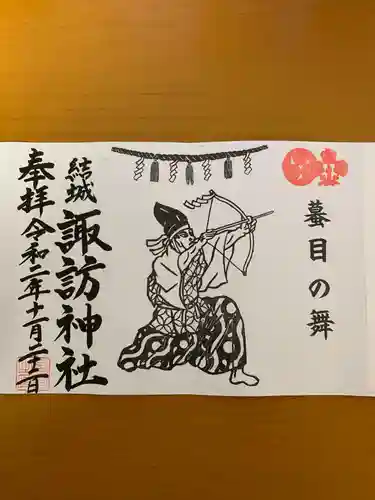 蟇目の舞
結城
諏訪神社
奉拝 令和二年十一月二十二日